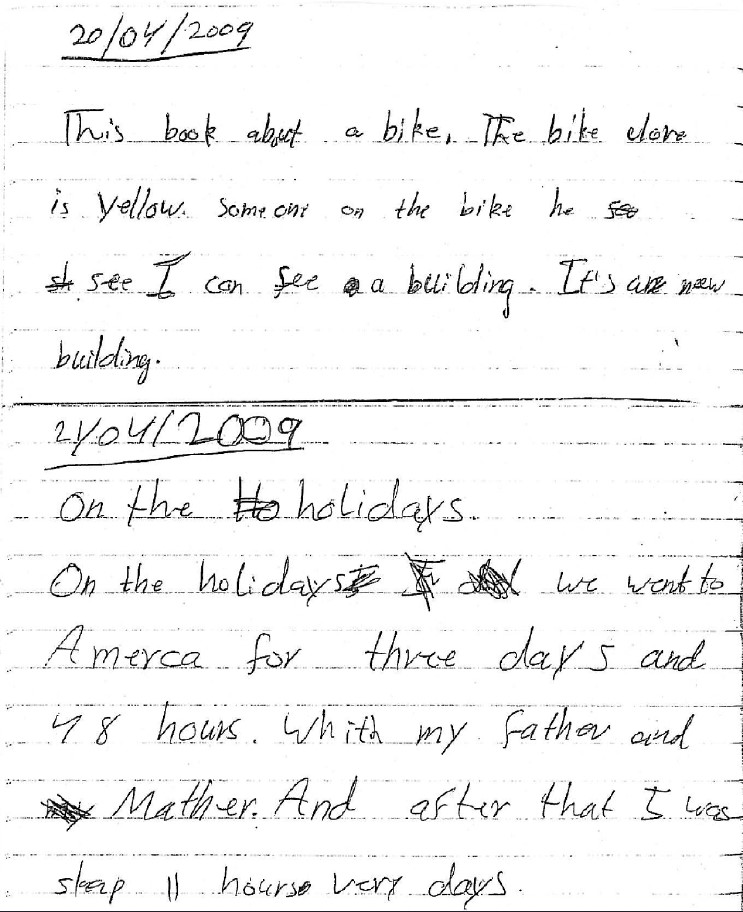 20/04/2009
This book about a bike. The bike clore
is yellow. Someone on the bike he see
st see I can see a building. It's are new
building.
21/04/2009
On the Ho holidays.
On the holidays I we went to
Amerca for three days and
48 hours. Whith my father and
my Mather. And after that I was
sleep 11 hours very days.